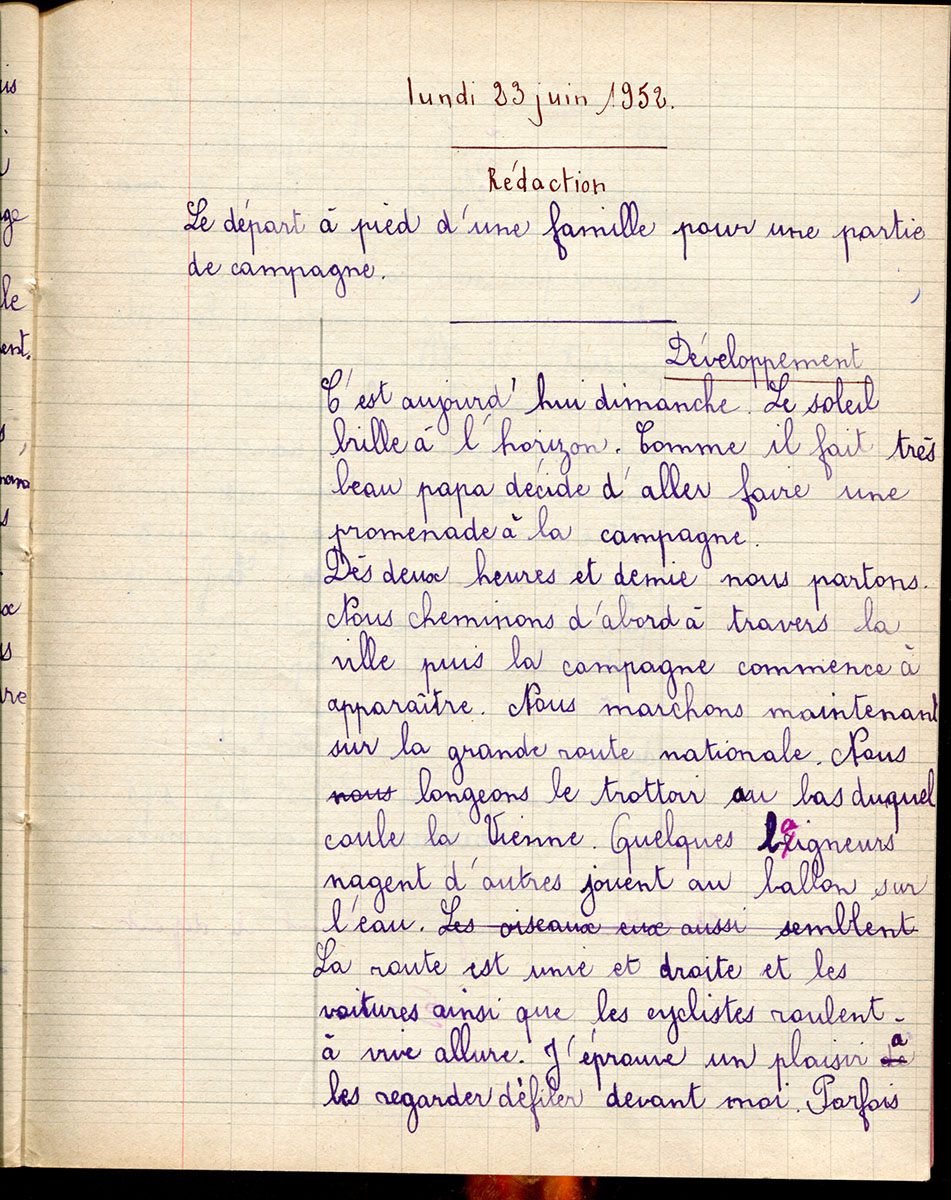 lundi 23 juin 1952.
Rédaction
Le départ à pied d'une famille pour une partie
de campagne.
Développement
C'est aujourd'hui dimanche. Le soleil
brille à l'horizon. Comme il fait très
beau papa décide d'aller faire une
promenade à la campagne.
Dès deux heures et demie nous partons.
Nous cheminons d'abord à travers la
ville puis la campagne commence à
apparaître. Nous marchons maintenant
sur la grande route nationale. Nous
nous longeons le trottoir au bas duquel
coule la Vienne. Quelques baigneurs
nagent d'autres jouent au ballon sur
l'eau. Les oiseaux eux aussi semblent
La route est unie et droite et les
voitures ainsi que les cyclistes roulent
à vive allure. J'éprouve un plaisir à
les regarder défiler devant moi. Parfois
us
ge
le
ent.
s,
s
x
s
re